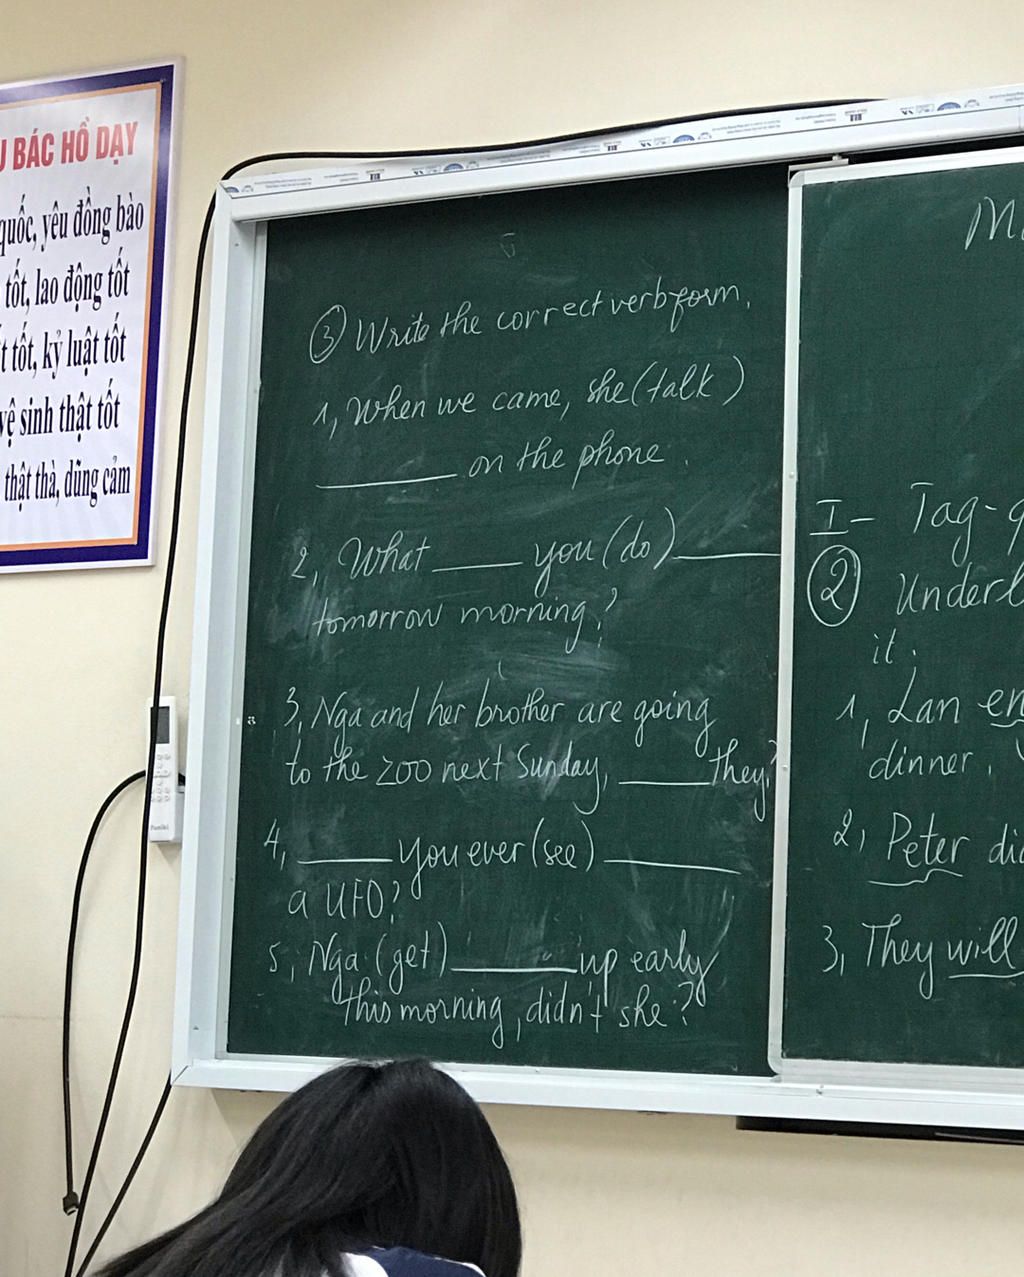 U BÁC HỒ DẠY
quốc, yêu đồng bào
tốt, lao động tốt
t tốt, kỷ luật tốt
vệ sinh thật tốt
thật thà, dũng cảm
③ Write the correct verb form.
1, When we came, she (talk)
_____ on the phone.
2, What _____ you (do) _____
tomorrow morning?
3, Nga and her brother are going
to the zoo next Sunday, _____ they?
4, _____ you ever (see) _____
a UFO?
5, Nga (get) _____ up early
this morning, didn't she?
M
I- Tag-q
② Underl
it.
1, Lan en
dinner.
2, Peter di
3, They will